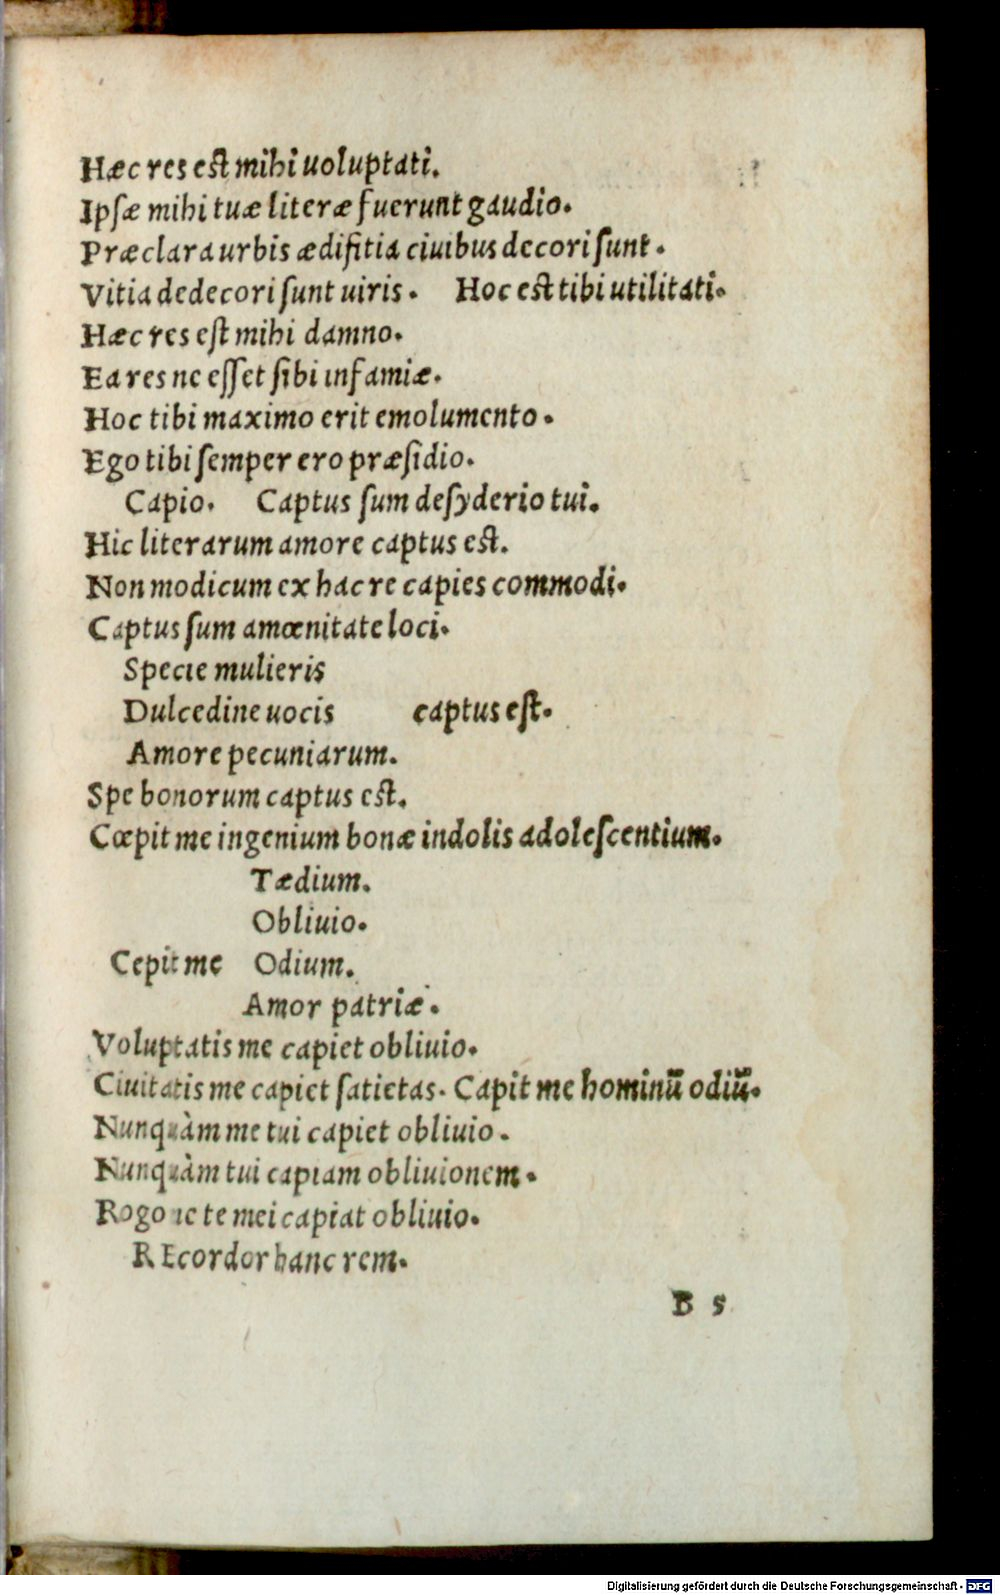 Hæc res est mihi uoluptati.
Ipsæ mihi tuæ literæ fuerunt gaudio.
Præclara urbis ædifitia ciuibus decori sunt.
Vitia dedecori sunt uiris. Hoc est tibi utilitati.
Hæc res est mihi damno.
Ea res ne esset sibi infamiæ.
Hoc tibi maximo erit emolumento.
Ego tibi semper ero præsidio.
Capio. Captus sum desyderio tui.
Hic literarum amore captus est.
Non modicum ex hac re capies commodi.
Captus sum amœnitate loci.
Specie mulieris
Dulcedine uocis captus est.
Amore pecuniarum.
Spe bonorum captus est.
Cœpit me ingenium bonæ indolis adolescentium.
Tædium.
Obliuio.
Cepit me Odium.
Amor patriæ.
Voluptatis me capiet obliuio.
Ciuitatis me capiet satietas. Capit me hominũ odiũ.
Nunquàm me tui capiet obliuio.
Nunquàm tui capiam obliuionem.
Rogo ne te mei capiat obliuio.
REcordor hanc rem.
B 5
Digitalisierung gefördert durch die Deutsche Forschungsgemeinschaft - DFG